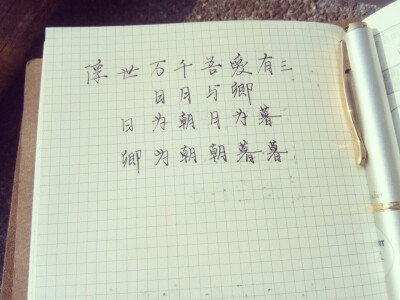 浮世万千吾爱有三
日月与卿
日为朝月为暮
卿为朝朝暮暮